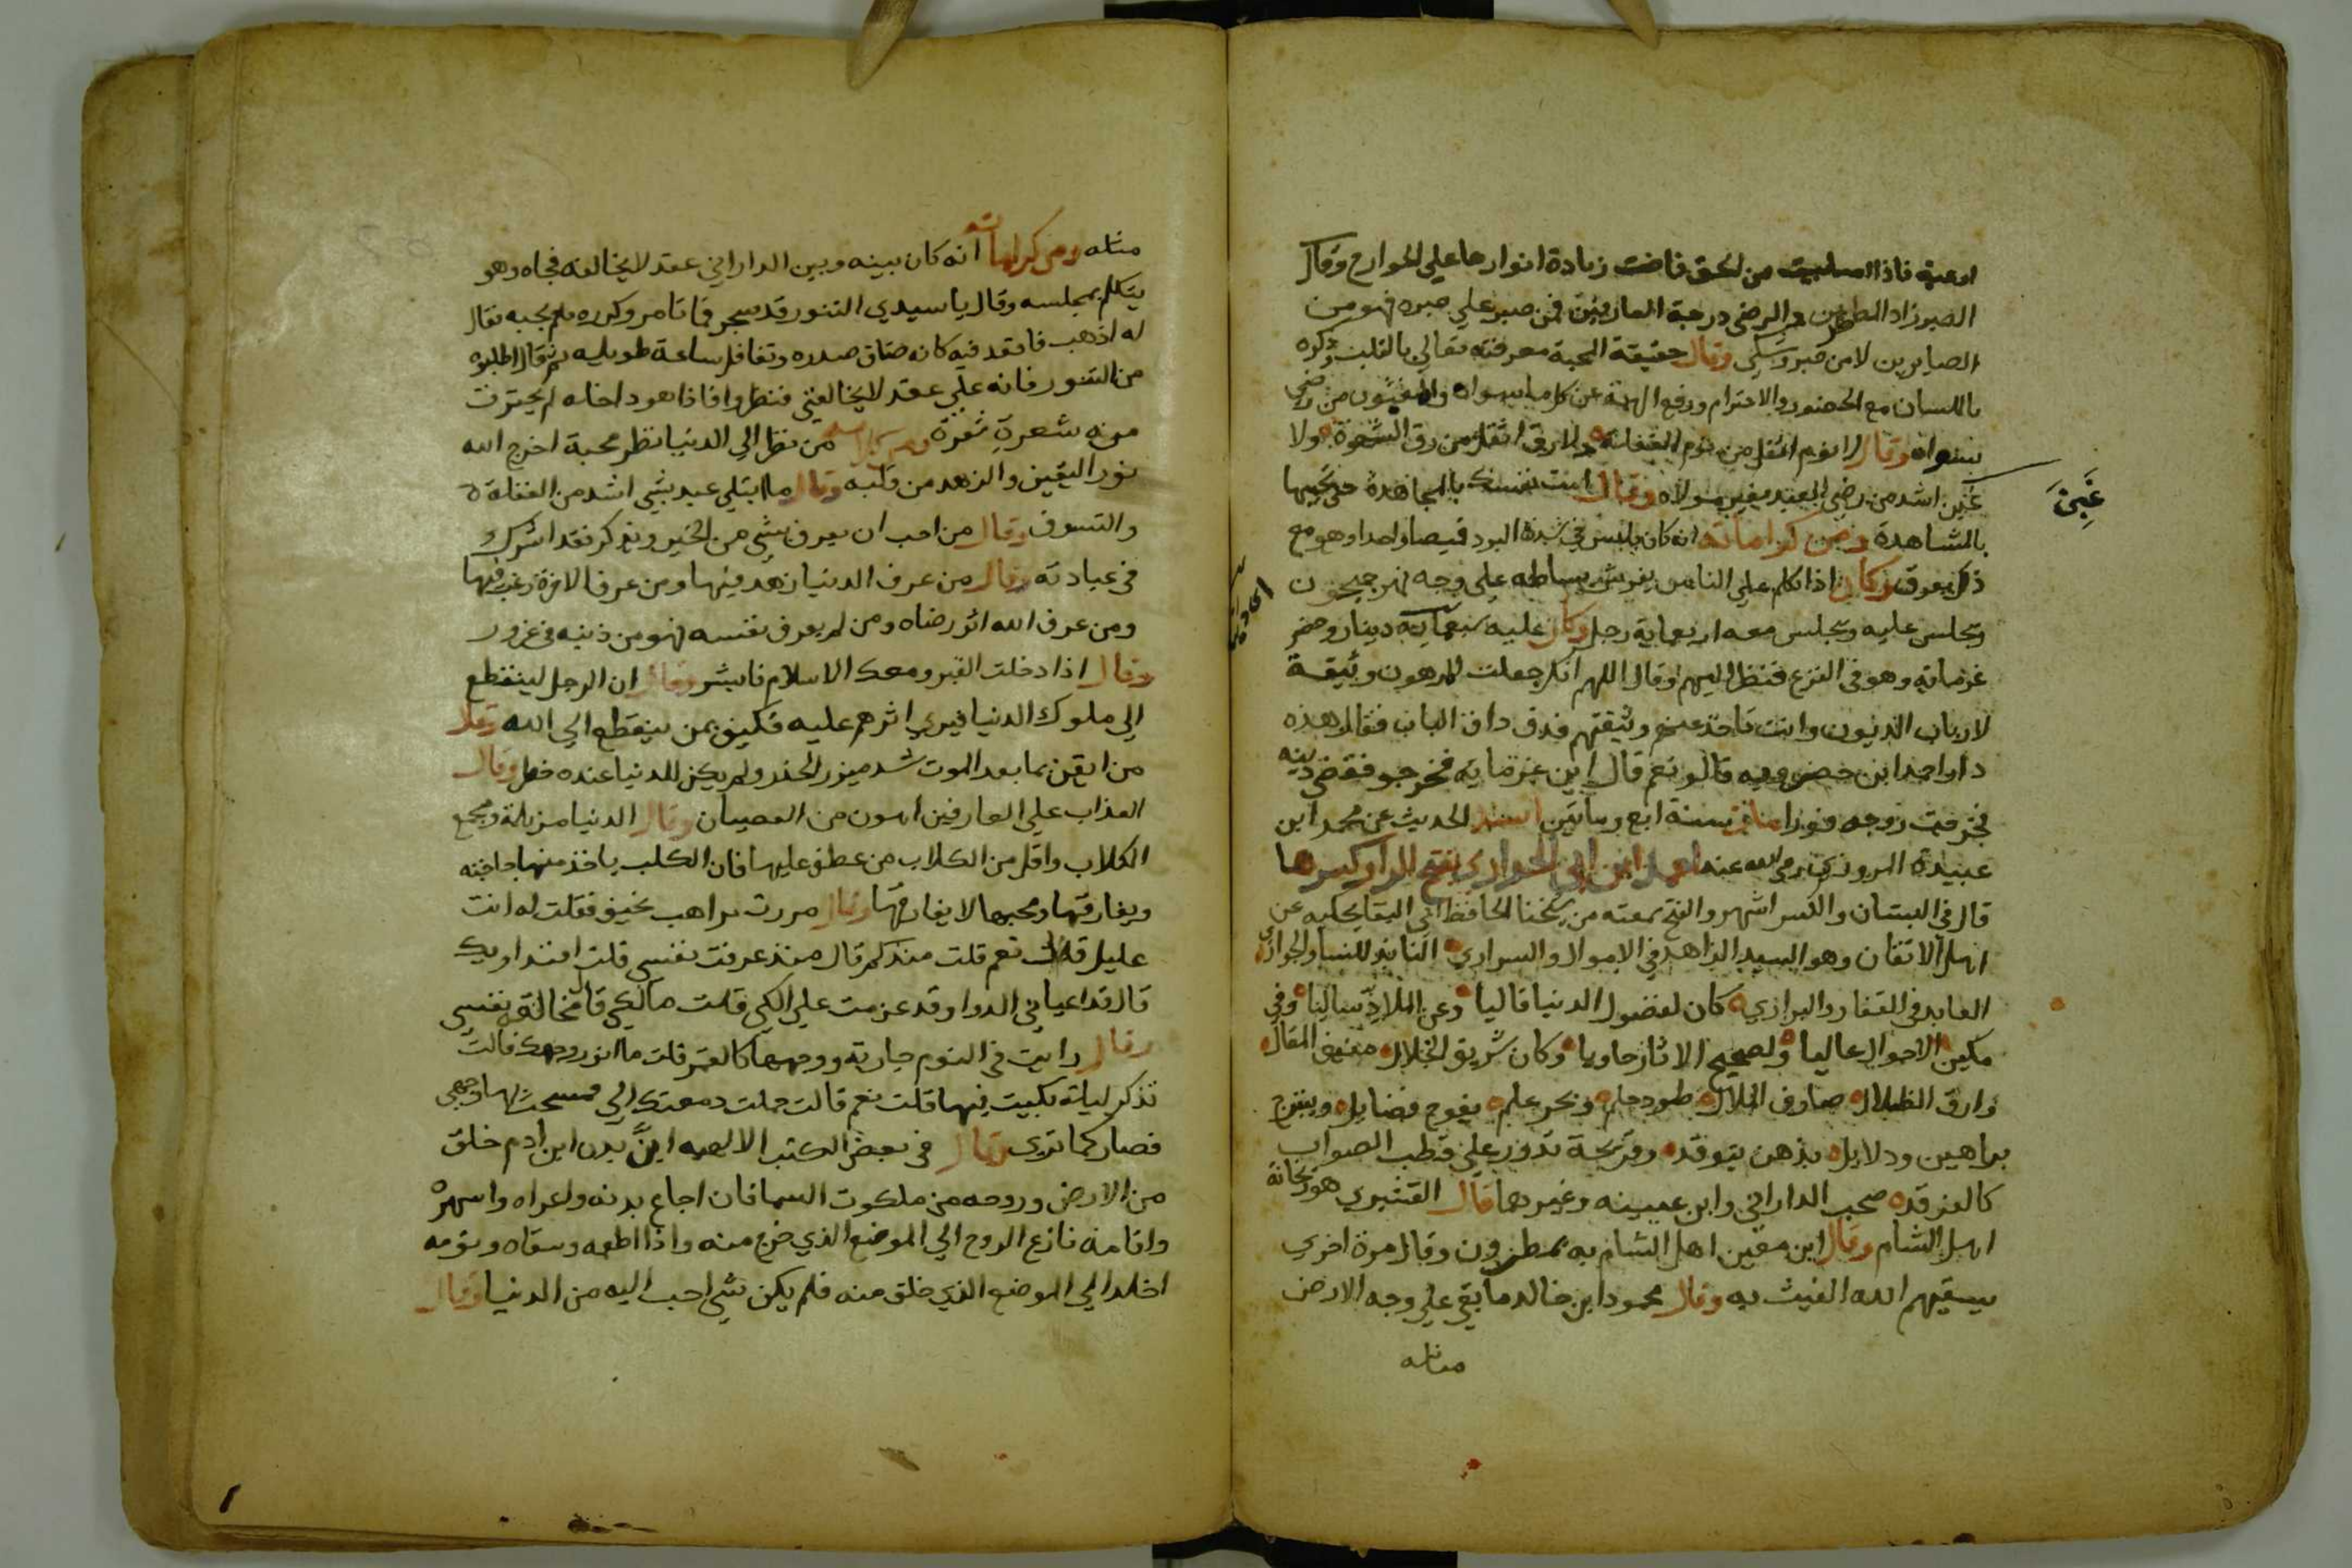 اوعية فاذا امتلیت من الحق فاضت زيادة انوارها علي الجوارح وقال
الصبر زاد المضطرين والرضي درجة العارفين فمن صبر علي صبره فهو من
الصابرين لا من صبر وشكي وقال حقيقة المحبة معرفته تعالي بالقلب وذكره
باللسان مع الحضور والاحترام ورفع الهمة عن كل ما سواه والمغبون من رضي
بسواه وقال لا نوم اثقل من نوم الغفلة ولا رق اثقل من رق الشهوة ولا
غبن اشد من رضي العبد بغير مولاه وقال امت نفسك بالمجاهدة حتي تحييها
غبن
بالمشاهدة ومن كراماته انه كان يلبس في شدة البرد قيصا واحدا وهو مع
ذلك يعرق وكان اذا تكلم علي الناس يفرش بساطه علي وجه نهر جيحون
ويجلس عليه ويجلس معه اربعماية رجل وكان عليه سبعماية دينار وحضر
غرماته وهو في النزع فنظر اليهم وقال اللهم انك جعلت الرهون وثيقة
لارباب الديون وانت تاخذ عنهم وثيقتهم فدق داق الباب فقال هذه
دار احمد ابن خضرويه قالو نعم قال اين غرمايه فخرجو فقضي دينه
فخرجت روحه فورا مات سنة اربع وماتين اسند الحديث عن محمد ابن
عبيدة المروزي رضي الله عنه احمد ابن ابي الحواري بفتح الراء وكسرها
قال في البستان والكسر اشهر والفتح سمعته من شيخنا الحافظ ابي البقا يحكيه عن
اهل الاتقان وهو السيد الزاهد في الاموال والسراري النابذ للنسا والجواري
العابد في القفار والبراري كان لفضول الدنيا قاليا وعن الملاذ ساليا وفي
مكين الاحوال عاليا ولصحيح الاثار حاويا وكان شريق الخلال مغدق المقال
وارق الظلال صارف الخلال طود حلم وبحر علم يفوح فضايل ويتفوح
براهين ودلايل بذهن يتوقد وقريحة تدور علي قطب الصواب
كالفرقد صحب الداراني وابن عيينه وغيرهما قال القشيري هو ريحانة
اهل الشام وقال ابن معين اهل الشام به يمطرون وقال مرة اخري
يسقيهم الله الغيث به وقال محمود ابن خالد ما بقي علي وجه الارض
مثله
مثله ومن كراماته انه كان بينه وبين الداراني عقد لا يخالفه فجاه وهو
يتكلم بمجلسه وقال يا سيدي التنور قد سجر فما تامر وكرره فلم يجبه فقال
له اذهب فاقعد فيه كانه ضاق صدره وتغافل ساعة طويله ثم قال اطلبوه
من التنور فانه علي عقد لا يخالفني فنظروا فاذا هو داخله لم يحترق
منه شعرة ومن كلامه من نظر الي الدنيا نظر محبة اخرج الله
نور اليقين والزهد من قلبه وقال ما ابتلي عبد بشي اشد من الغفلة
والتسوف وقال من احب ان يعرف بشي من الخير ويذكر فقد اشرك
في عبادته وقال من عرف الدنيا زهد فيها ومن عرف الاخرة رغب فيها
ومن عرف الله اثر رضاه ومن لم يعرف نفسه فهو من دينه في غرور
وقال اذا دخلت القبر ومعك الاسلام فابشر وقال ان الرجل لينقطع
الي ملوك الدنيا فيري اثرهم عليه فكيف بمن ينقطع الي الله وقال
من ايقن بما بعد الموت شد ميزر الحذر ولم يكن للدنيا عنده خطر وقال
العذاب علي العارفين اهون من العصيان وقال الدنيا مزبلة ومجمع
الكلاب واقل من الكلاب من عطف عليها فان الكلب ياخذ منها حاجته
ويفارقها ومحبها لا يفارقها وقال مررت براهب نحيف فقلت له انت
عليل قال نعم قلت منذ كم قال منذ عرفت نفسي قلت افتداويك
قال قد اعياني الدوا وقد عزمت علي الكي قلت ما الكي قال مخالفة نفسي
وقال رايت في النوم جارية ووجهها كالقمر قلت ما انور وجهك قالت
تذكر ليلة بكيت فيها قلت نعم قالت حملت دمعتك الي فمسحت بها وجهي
فصار كما تري وقال في بعض الكتب الالهيه ان بدن ابن ادم خلق
من الارض وروحه من ملكوت السما فان اجاع بدنه واعراه واسهره
واقامه نازع الروح الي الموضع الذي خرج منه واذا اطعمه وسقاه ونومه
اخلد الي الموضع الذي خلق منه فلم يكن شي احب اليه من الدنيا وقال